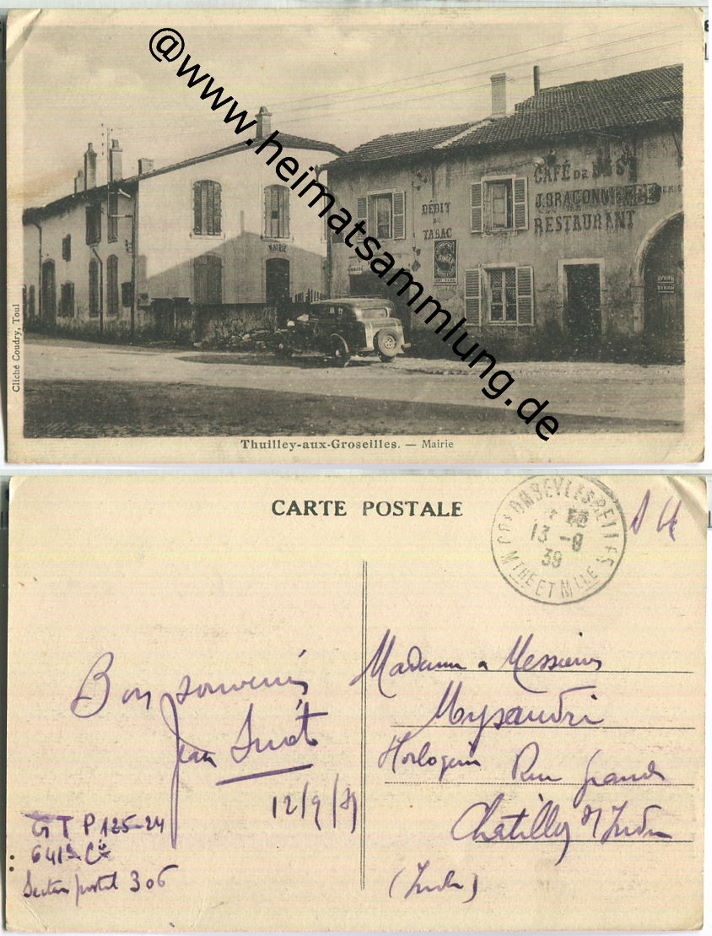 @www.heimatsammlung.de
CAFÉ DE
J. BRACONNIER
RESTAURANT
DÉBIT
DE
TABAC
MAIRIE
Cliché Coudry, Toul
Thuilley-aux-Groseilles. — Mairie
CARTE POSTALE
COLOMBEY LES BELLES
13 - 9
39
MTHE ET MLLE
Bon souvenir
Jean
12/9/39
G T P 125-24
641e Cie
Secteur postal 306
Madame & Messieurs
Horlogerie Rue grande
Chatillon s/ Indre
(Indre)